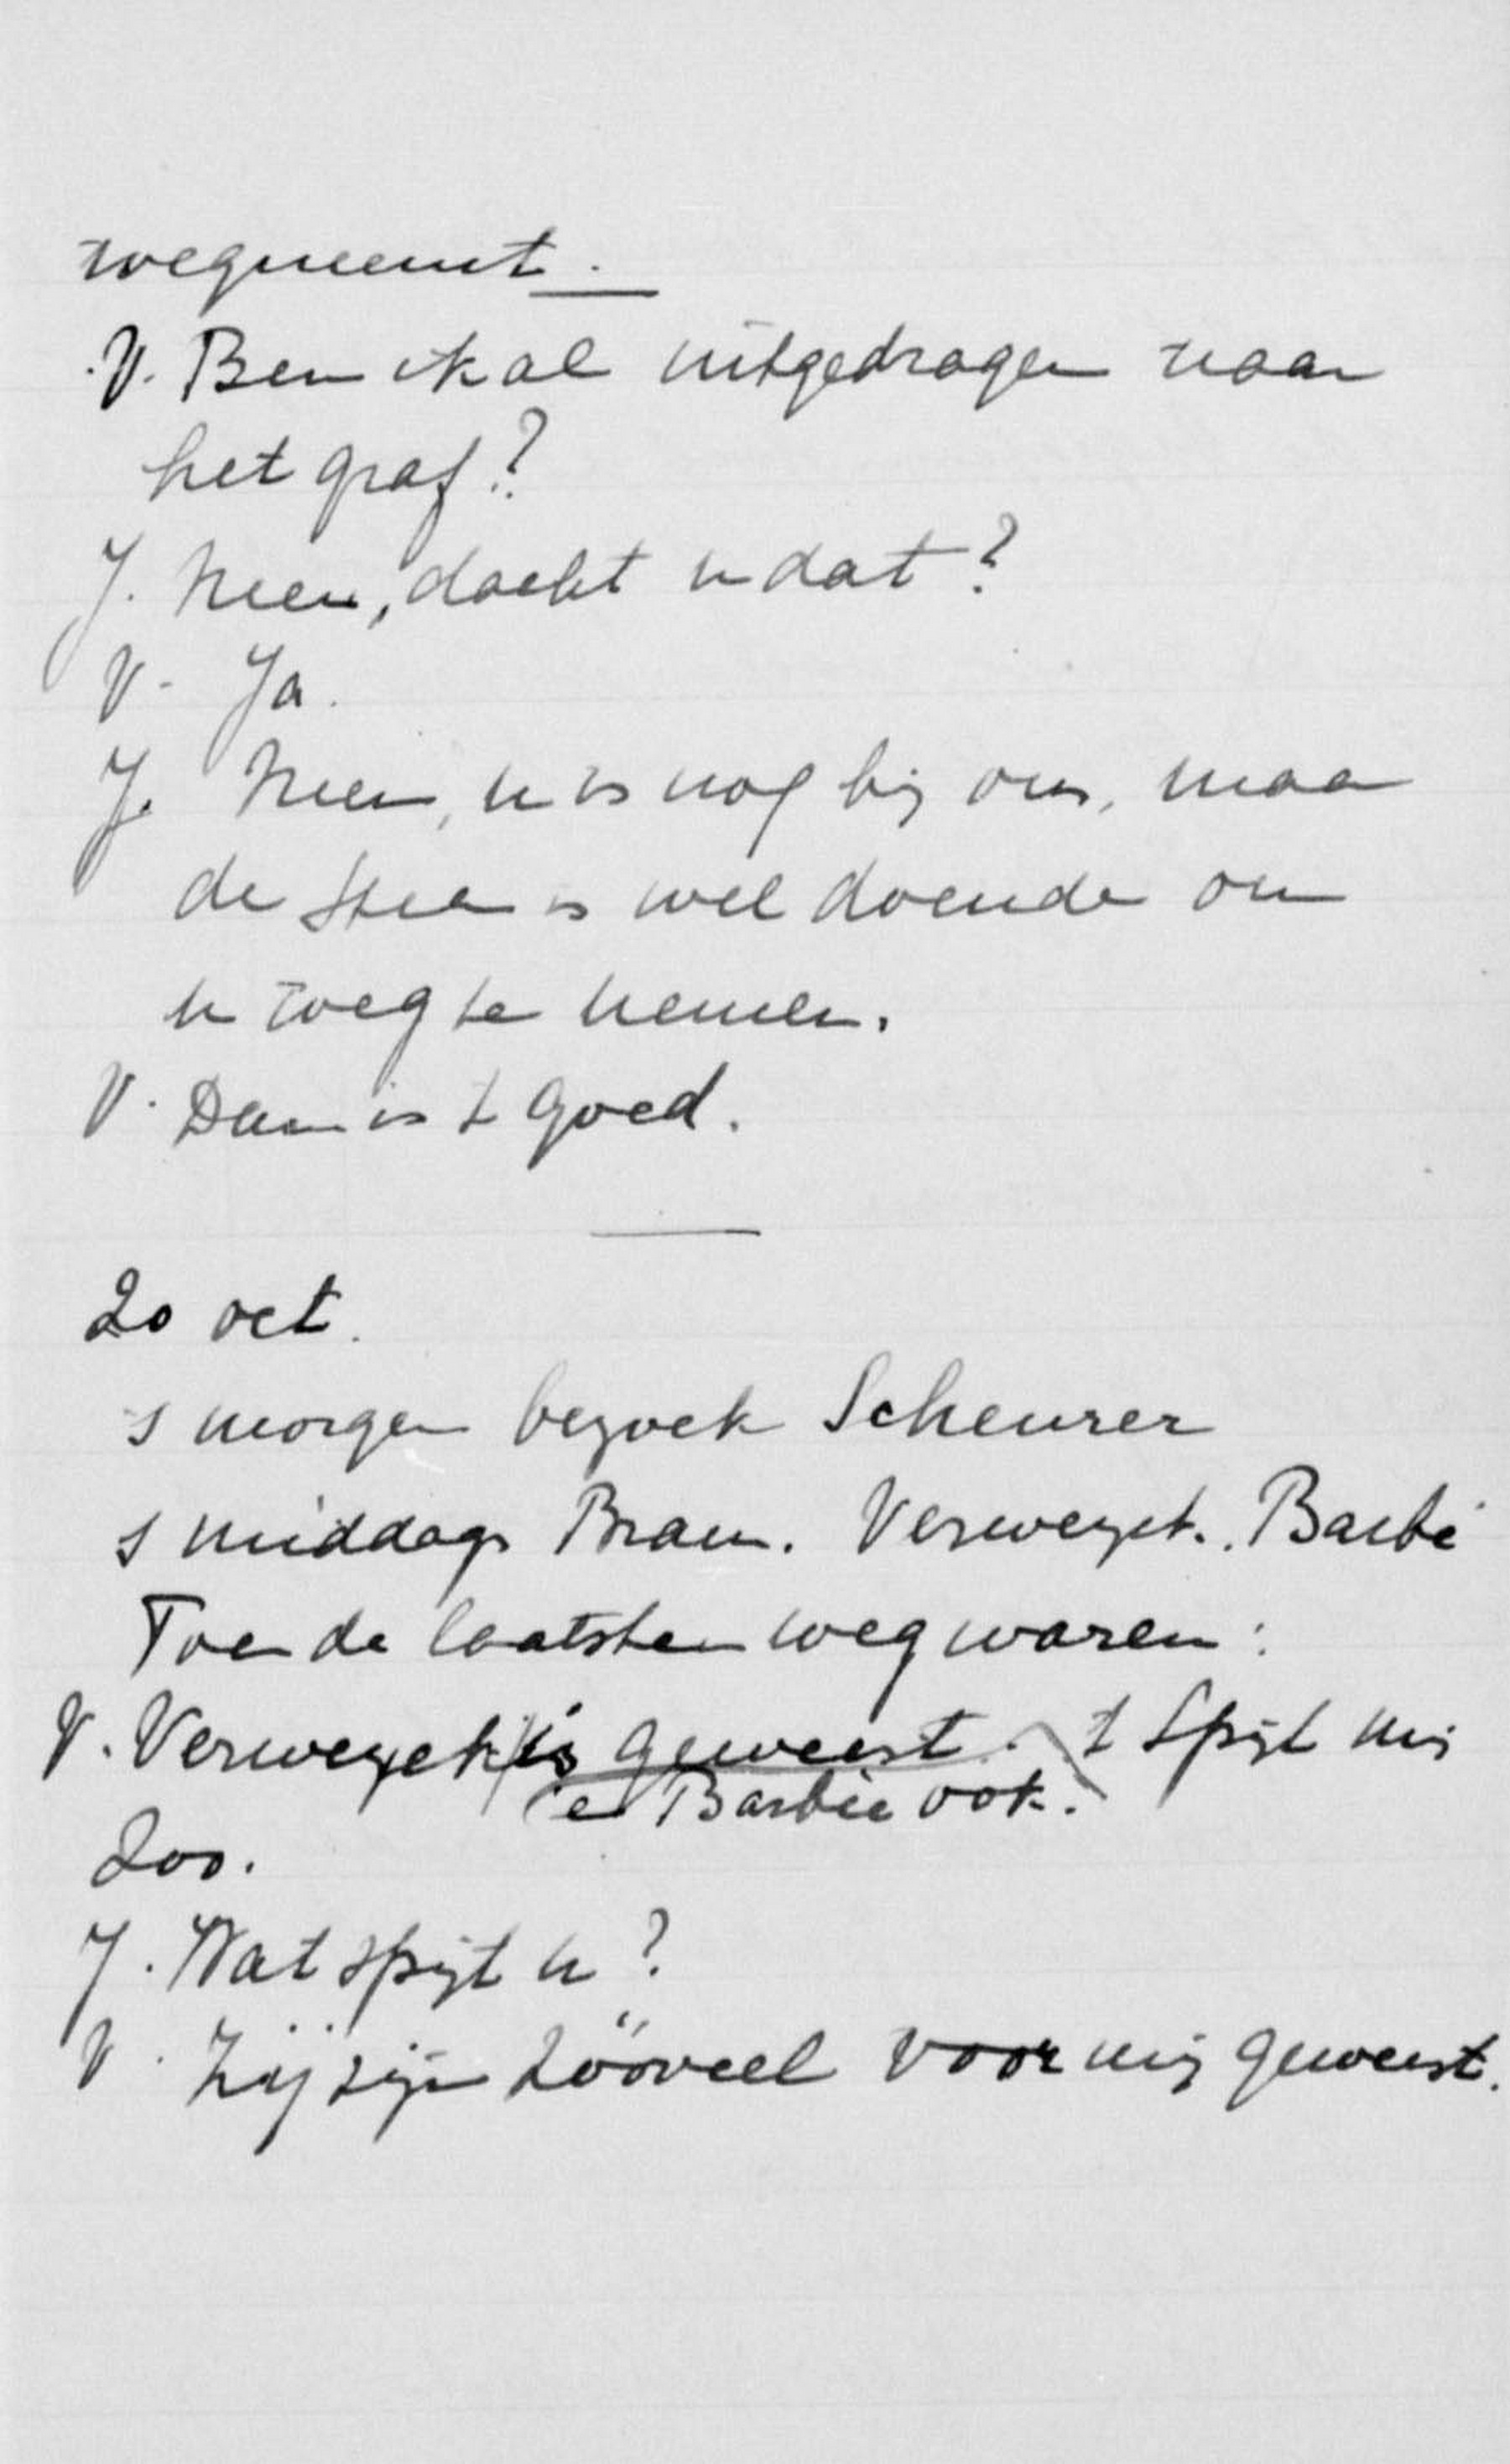 wegneemt.
V. Ben ik al uitgedragen naar
het graf?
J. Neen, dacht u dat?
V. Ja.
J. Neen, u is nog bij ons, maar
de Heer is wel doende om
u weg te nemen.
V. Dan is 't goed.
20 oct.
s morgen bezoek Scheurer
s middags Bram. Verweyek. Barbé
Toen de laatsten weg waren:
V. Verweyek is geweest. 't spijt mij
en Barbée ook.
Zoo.
J. Wat spijt u?
V. Zij zijn zóóveel voor mij geweest.